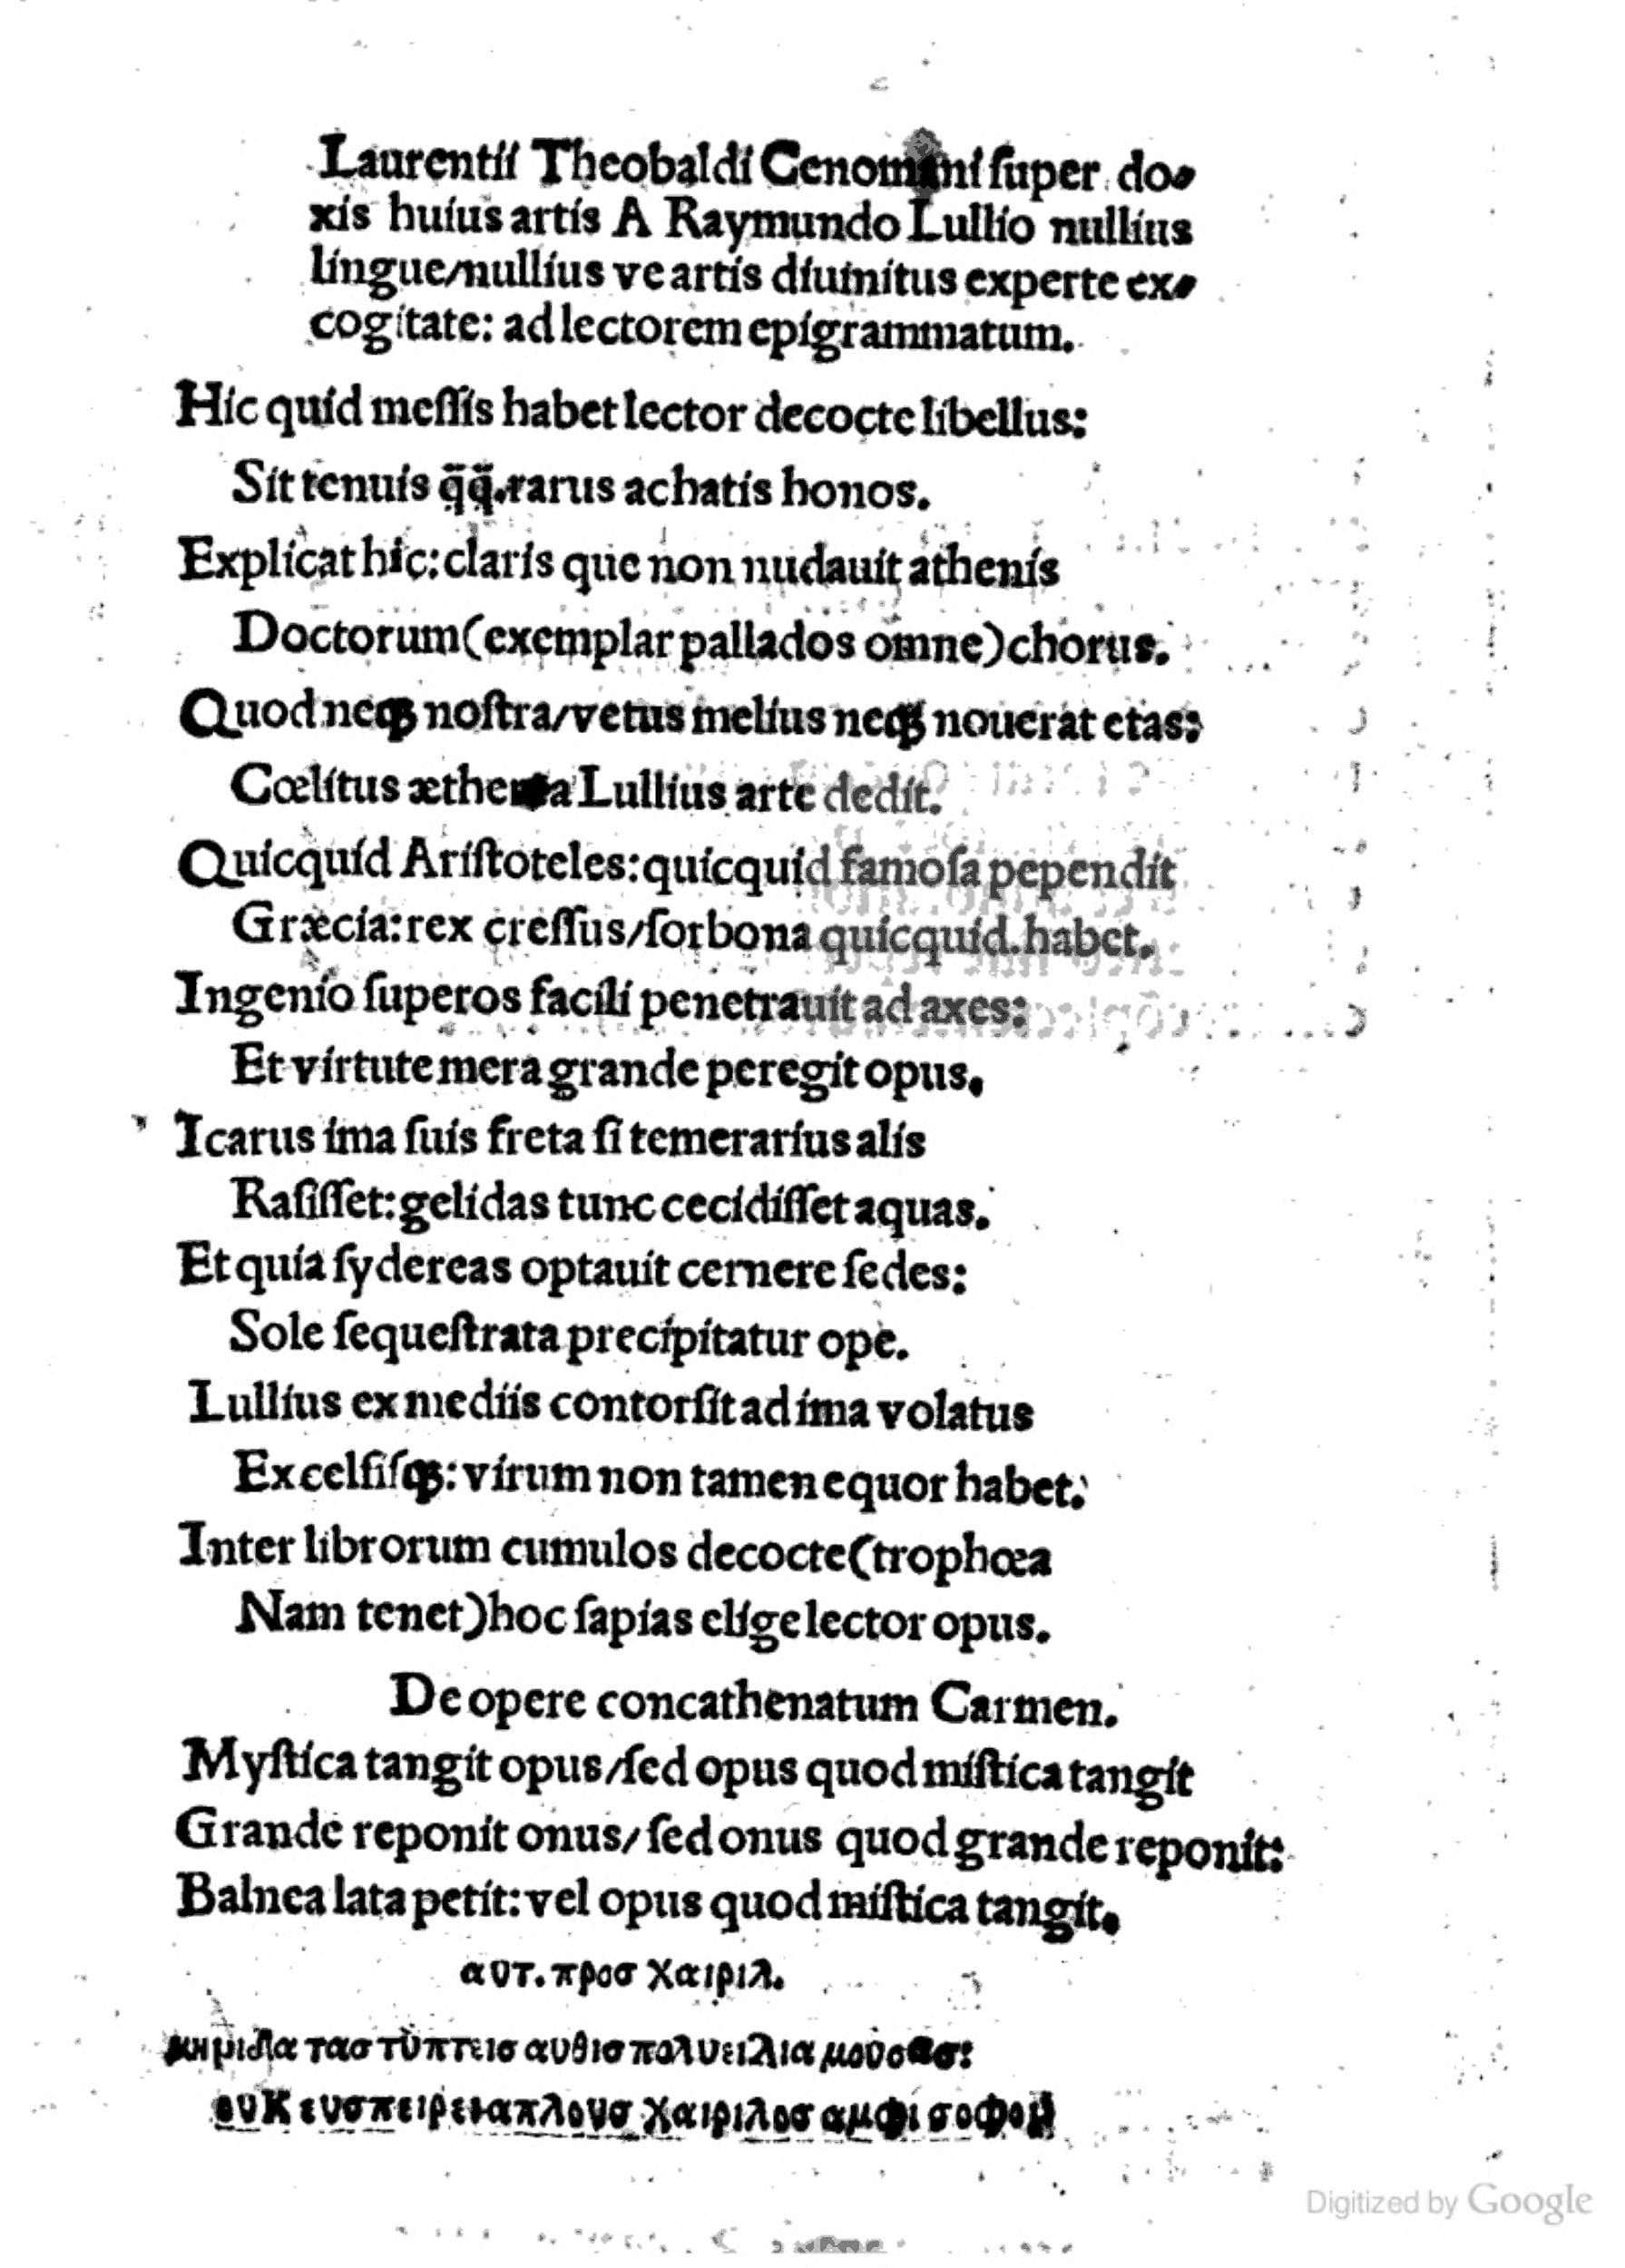 Laurentii Theobaldi Cenomani ſuper do⸗
xis huius artis A Raymundo Lullio nullius
lingue/nullius ve artis diuinitus experte ex⸗
cogitate: ad lectorem epigrammatum.
Hic quid meſſis habet lector decocte libellus:
Sit tenuis q̈q̈. rarus achatis honos.
Explicat hic: claris que non nudauit athenis
Doctorum (exemplar pallados omne) chorus.
Quod neqꝫ noſtra/vetus melius neqꝫ nouerat etas:
Cœlitus ætherea Lullius arte dedit.
Quicquid Ariſtoteles: quicquid famoſa pependit
Græcia: rex creſſus/ſorbona quicquid. habet.
Ingenio ſuperos facili penetrauit ad axes:
Et virtute mera grande peregit opus.
Icarus ima ſuis freta ſi temerarius alis
Raſiſſet: gelidas tunc cecidiſſet aquas.
Et quia ſydereas optauit cernere ſedes:
Sole ſequeſtrata precipitatur ope.
Lullius ex mediis contorſit ad ima volatus
Excelſiſqꝫ: virum non tamen equor habet.
Inter librorum cumulos decocte (trophœa
Nam tenet) hoc ſapias elige lector opus.
De opere concathenatum Carmen.
Myſtica tangit opus/ſed opus quod miſtica tangit
Grande reponit onus/ſed onus quod grande reponit:
Balnea lata petit: vel opus quod miſtica tangit.
αυτ. προσ χαιριλ.
τασ τὺπτεισ αυθισ πολυειλια μοὺσασ:
ουκ ευσπειρει απλουσ χαιριλοσ αμφι σοφον
Digitized by Google